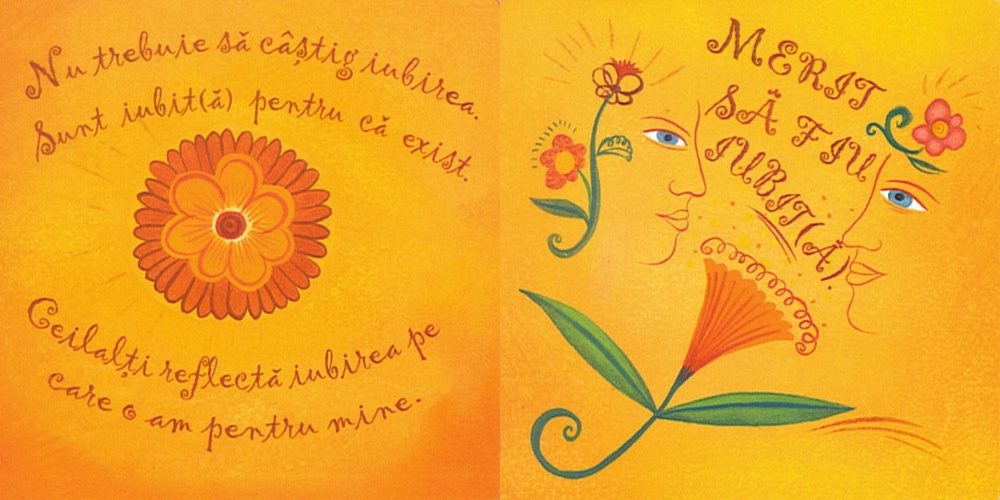 Nu trebuie să câștig iubirea.
Sunt iubit(ă) pentru că exist.
Ceilalți reflectă iubirea pe
care o am pentru mine.
MERIT
SĂ FIU
IUBIT(Ă).